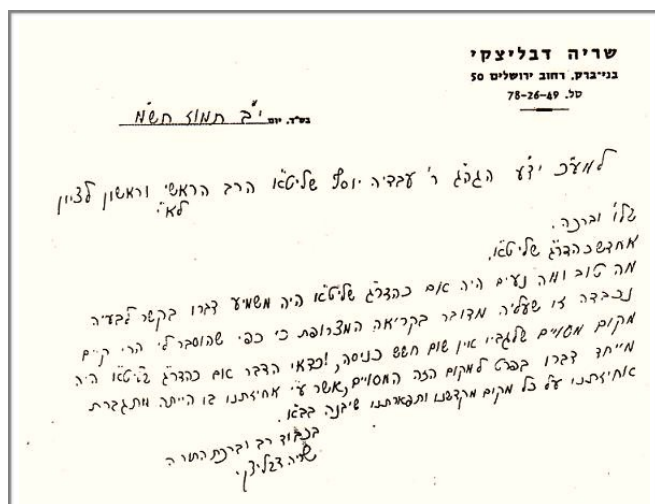 שריה דבליצקי
בני־ברק, רחוב ירושלים 50
טל. 78-26-49
בס"ד, יום י"ב תמוז תש"מ
למע"כ ידי"ע הגה"ג ר' עבדיה יוסף שליט"א הרב הראשי וראשון לציון
לא"י
שלו' וברכה.
אחדשכהדר"ג שליט"א,
מה טוב ומה נעים היה אם כהדר"ג שליט"א היה משמיע דברו בקשר לבעיה
נכבדה זו שעליה מדובר בקריאה המצורפת כי כפי שהוסבר לי הרי קיים
מקום מסויים שלגביו אין שום חשש כניסה, וכדאי הדבר אם כהדר"ג שליט"א היה
מייחד דברו בפרט למקום הזה המסויים, אשר ע"י אחיזתנו בו הייתה מתגברת
אחיזתנו על כל מקום מקדשנו ותפארתנו שיבנה בב"א.
בכבוד רב וברכת התורה
שריה דבליצקי